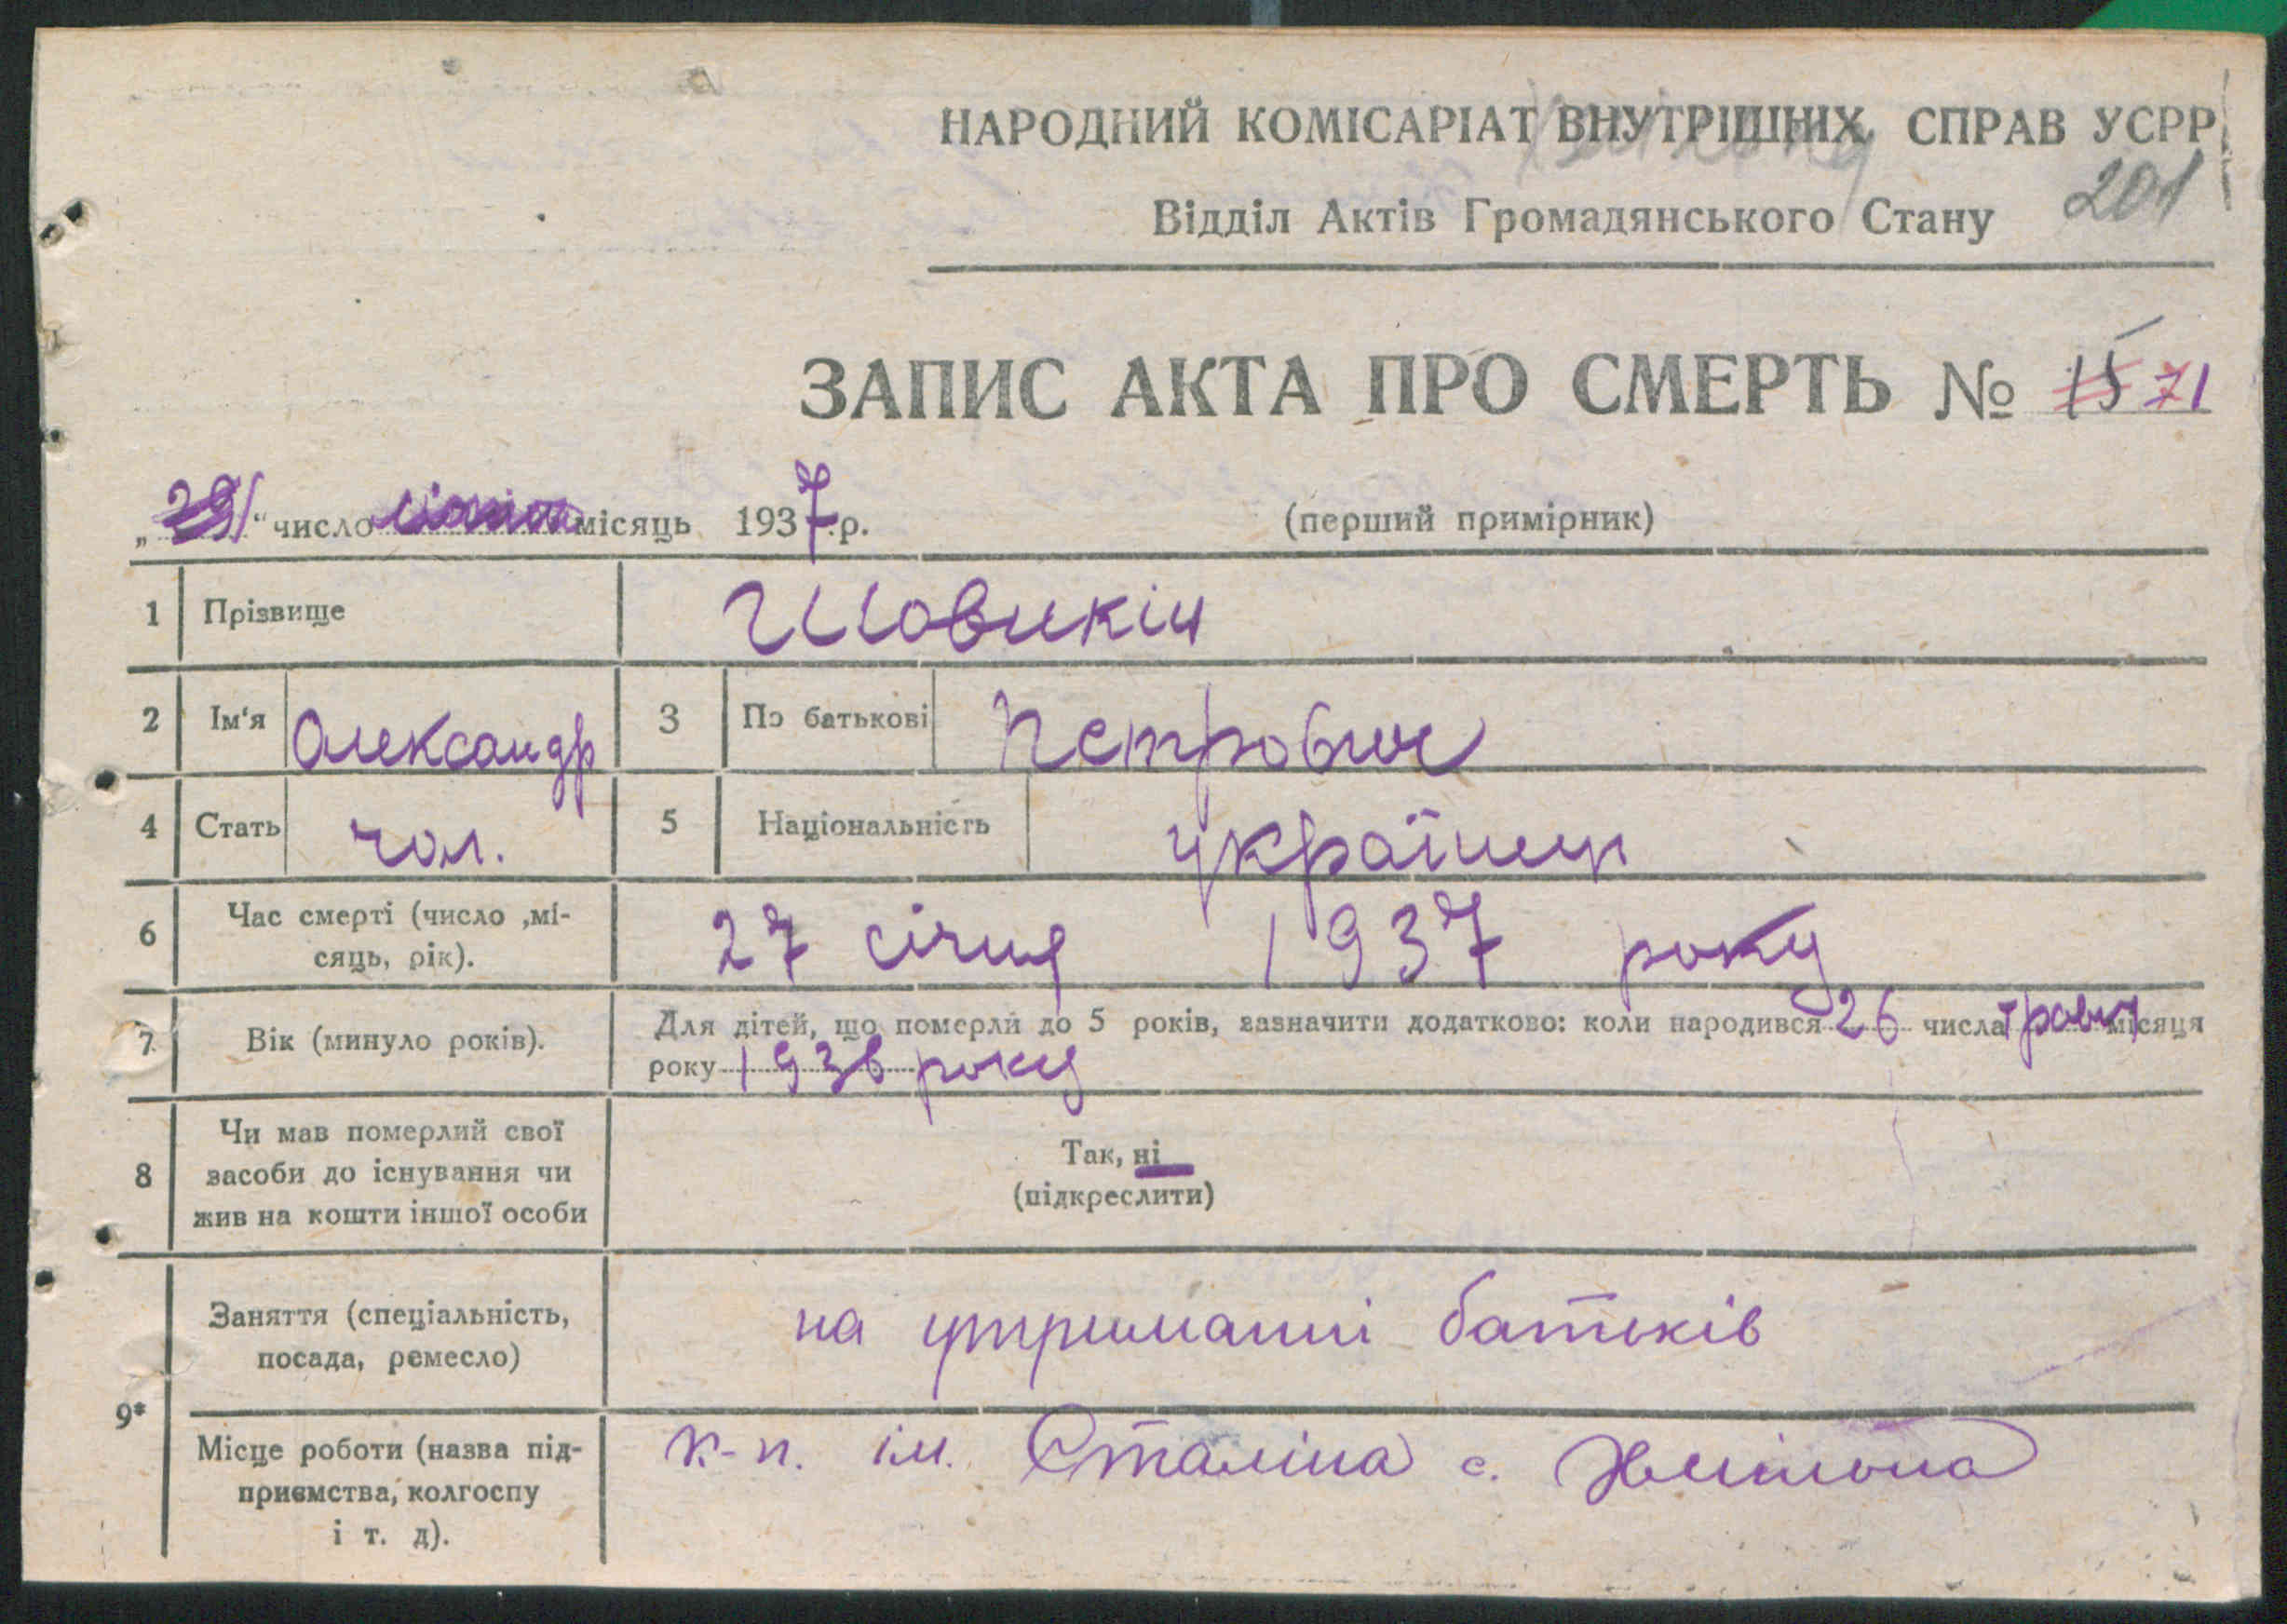 НАРОДНИЙ КОМІСАРІАТ ВНУТРІШНІХ СПРАВ УСРР
Відділ Актів Громадянського Стану 201
ЗАПИС АКТА ПРО СМЕРТЬ № 15 71
„29" число місяць 1937 р. (перший примірник)
1 Прізвище Шовикін
2 Ім'я Олександр 3 По батькові Петрович
4 Стать чол. 5 Національність українец
6 Час смерті (число ,мі-
сяць, рік).
27 січня 1937 року
7 Вік (минуло років). Для дітей, що померли до 5 років, зазначити додатково: коли народився 26 числа травня місяця
року 1936 року
8 Чи мав померлий свої
засоби до існування чи
жив на кошти іншої особи
Так, ні
(підкреслити)
9*
Заняття (спеціальність,
посада, ремесло)
на утриманні батьків
Місце роботи (назва під-
приємства, колгоспу
і т. д).
к-п. ім. Сталіна с.